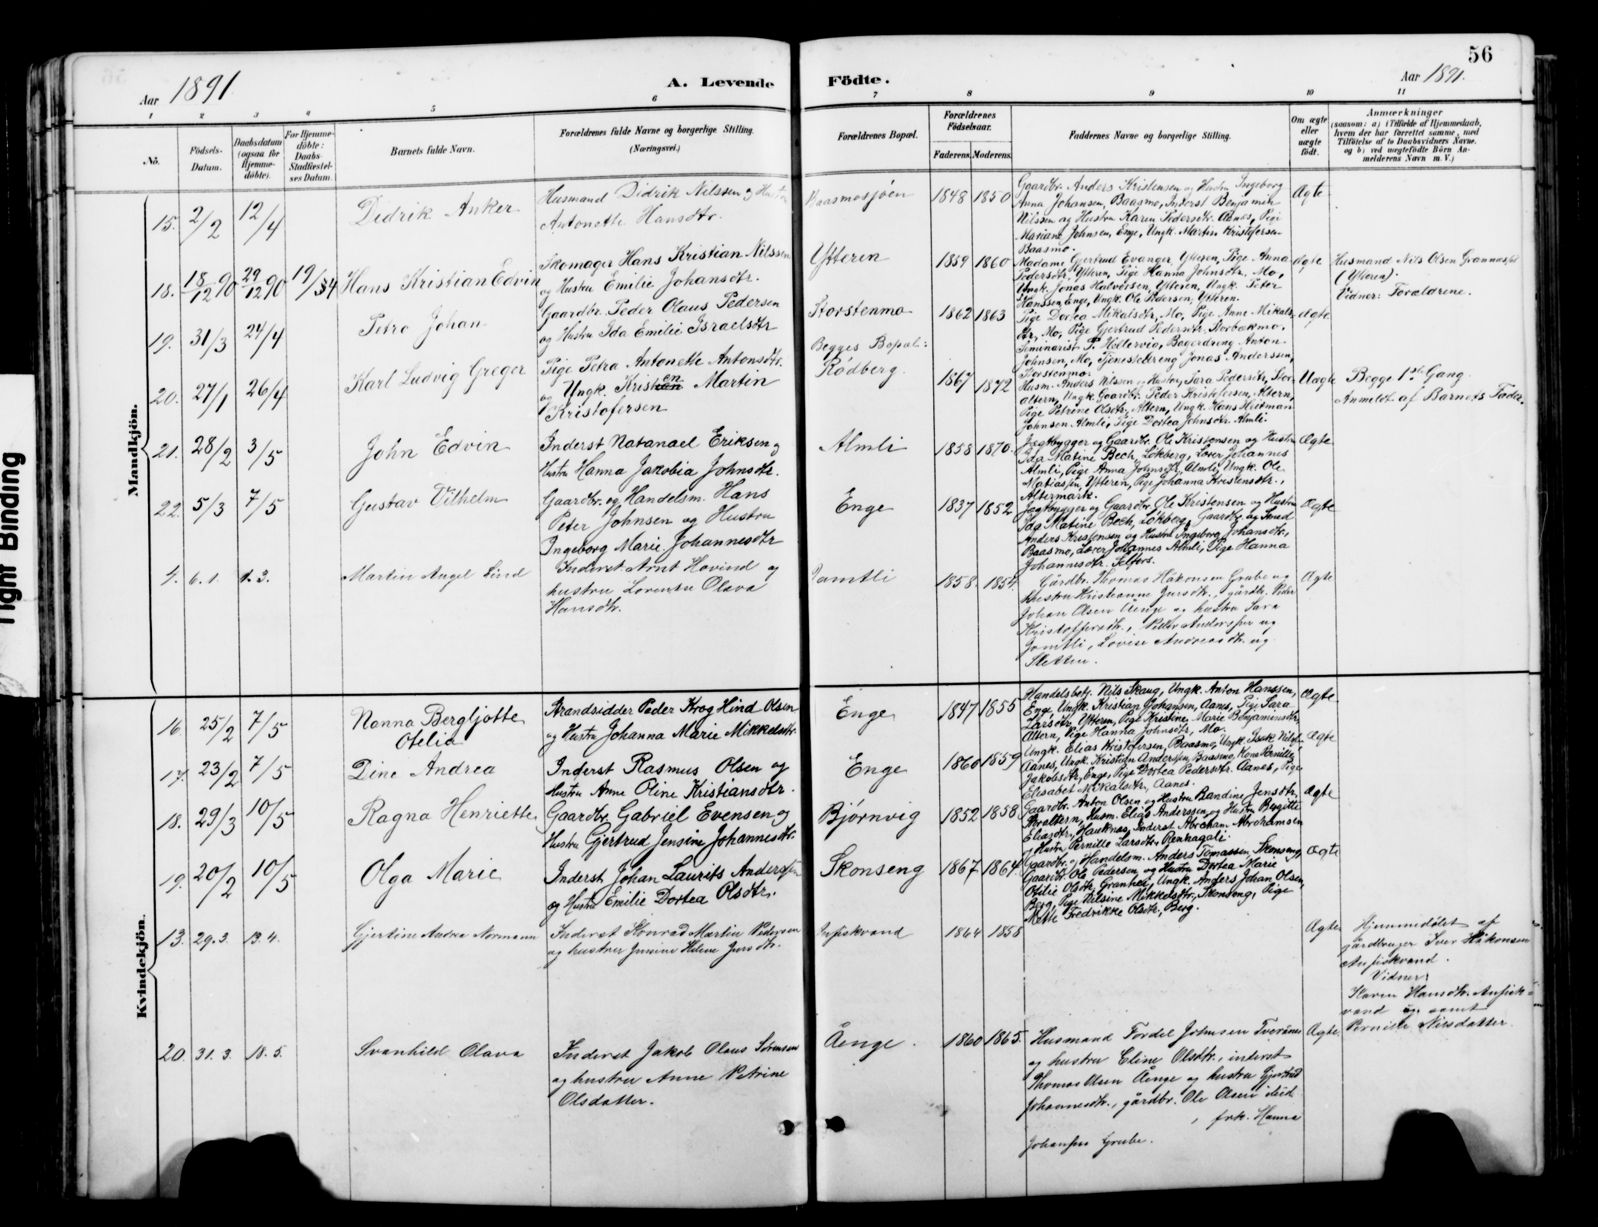 56
Aar 1891
A. Levende
Födte.
Aar 1891.
1 2 3 4 5 6 7 8 9 10 11
No.
Födsels-
Datum.
Daabsdatum
(ogsaa för
Hjemme-
döbte).
For Hjemme-
döbte:
Daabs-
Stadfæstel-
ses Datum.
Barnets fulde Navn.
Forældrenes fulde Navne og borgerlige Stilling.
(Næringsvei.)
Forældrenes Bopæl.
Forældrenes
Födselsaar.
Faderens. Moderens.
Faddernes Navne og borgerlige Stilling.
Om ægte
eller
uægte
födt.
Anmærkninger
(saasom: a) i Tilfælde af Hjemmedaab,
hvem der har forrettet samme, med
Tilföielse af to Daabsvidners Navne,
og b) ved uægtefödte Börn An-
melderens Navn m. V.)
Mandkjön.
15. 2/2 12/4
Didrik Anker
Husmand Didrik Nilssen og Hustru
Antonette Hansdtr.
Baasmosjöen
1848 1850
Gaardbr. Anders Kristensen og Hustru Ingeborg
Anna Johansen, Baasmo, Inderst Benjamin
Nilssen og Hustru Karen Pedersdtr. Aanes, Pige
Mariane Johnsen, Enge, Ungk. Martin Kristofersen
Baasmo.
Ægte
18. 18/12 90 29/12 90 19/4
Hans Kristian Edvin
Skomager Hans Kristian Nilssen
og Hustru Emilie Johansdtr.
Ytteren
1859 1860
Madame Gjertrud Evanger, Ytteren, Pige Anna
Pedersdtr, Ytteren, Pige Hanna Johnsdtr, Mo,
Ungk. Jonas Halvorsen, Ytteren, Ungk. Peter
Hanssen, Enge, Ungk. Ole Pedersen, Ytteren.
Ægte
Husmand Nils Olsen
(Ytteren).
Vidner: Forældrene.
19. 31/3 24/4
Petro Johan
Gaardbr. Peder Olaus Pedersen
og Hustru Ida Emilie Israelsdtr
Storstenmo
1862 1863
Pige Dortea Mikalsdtr, Mo, Pige Anne Mikals-
dtr, Mo, Pige Gjertrud Pedersdtr. Storbækmo,
Seminarist P. Hillervig, Bagerdreng Anton
Johnsen, Mo, Tjenestedreng Jonas Anderssen,
Storstenmo.
Ægte
20. 27/1 26/4
Karl Ludvig Greger
Pige Petra Antonette Antonsdtr.
og Ungk. Kristen Martin
Kristofersen
Begges Bopæl:
Rödberg.
1867 1872
Husm. Anders Nilssen og Hustru, Sara Pedersdtr, Stor-
altern, Ungk. Gaardbr. Peder Kristofersen, Altern,
Pige Petrine Olsdtr, Altern, Ungk. Hans Heitman
Johnsen Almli, Pige Dortea Johnsdtr. Almli.
Uægte
Begge 1ste Gang.
Anmeldt af Barnets Fader.
21. 28/2 3/5
John Edvin
Inderst Natanael Eriksen og
Hustru Hanna Jakobia Johnsdtr.
Almli
1858 1870
Jagtbygger og Gaardbr. Ole Kristensen og Hustru
Ida Matine Bech, Lökberg, Lærer Johannes
Almli, Pige Anna Johnsdtr, Almli, Ungk. Ole
Matiassen, Ytteren, Pige Johanna Kristensdtr.,
Altermark.
Ægte
22. 5/3 7/5
Gustav Vilhelm
Gaardbr. og Handelsm. Hans
Peter Johnsen og Hustru
Ingeborg Marie Johannesdtr
Enge
1837 1852
Jagtbygger og Gaardbr. Ole Kristensen og Hustru
Ida Matine Bech, Lökberg, Gaardbr. og Smed
Anders Kristensen og Hustru Ingeborg Johansdtr,
Baasmo, Lærer Johannes Almli, Pige Hanna
Johannesdtr. Selfors.
Ægte
4. 6. 1. 1. 3.
Martin Angel Lind
Inderst Arnt Hovind og
hustru Lorentze Olava
Hansdtr.
Jamtli
1858. 1854.
Gårdbr. Thomas Håkonsen Grube og
hustru Kristianne Jensdtr., gårdbr. Peder
Johan Olsen Aenge og hustru Sara
Kristoffersdtr., Peder Anderssen og
Jamtli, Lovise Andreasdtr. og
Sletten.
Ægte
Kvindekjön.
16. 25/2 7/5
Nanna Bergljotte
Otelia
Strandsidder Peder Krog Hind Olsen
og Hustru Johanna Marie Mikkelsdtr.
Enge
1847 1855
Handelsbetj. Nils Skaug, Ungk. Anton Hanssen,
Enge, Ungk. Kristian Johansen, Aanes, Pige Sara
Larsdtr, Ytteren, Pige Kristine Marie Benjaminsdtr,
Altern, Pige Hanna Johnsdtr, Mo.
Ægte
17. 23/2 7/5
Dine Andrea
Inderst Rasmus Olsen og
Hustru Anne Oline Kristiansdtr.
Enge
1860 1859
Ungk. Elias Kristofersen, Baasmo, Ungk. Isak Nilsen,
Aanes, Ungk. Kristian Andersen, Baasmo, Kone Pernille
Jakobsdtr, Enge, Pige Dortea Pedersdtr. Aanes, Pige
Elisabet Mikalsdtr, Aanes.
Ægte
18. 29/3 10/5
Ragna Henriette
Gaardbr. Gabriel Evensen og
Hustru Gjertrud Jensine Johannesdtr.
Bjørnvig
1852 1858
Gaardbr. Anton Olsen og Hustru Bandine Jensdtr,
Storaltern, Husm. Elias Anderssen og Hustru Birgitte
Eliasdtr, Hauknes, Inderst Abraham Abrahamsen
og Hustru Pernille Larsdtr, Ranhagali.
Ægte
19. 20/2 10/5
Olga Marie
Inderst Johan Laurits Andersen
og Hustru Emilie Dortea Olsdtr.
Skonseng
1867 1864
Gaardbr. og Handelsm. Anders Tomassen, Skonseng,
Gaardbr. Ole Pedersen og Hustru Dortea Marie
Otilie Olsdtr, Granhei, Ungk. Anders Johan Olsen,
Berg, Pige Nilsine Mikkelsdtr, Skonseng, Pige
Mette Fredrikke Olsdtr, Berg.
Ægte
13. 29. 3. 13. 4.
Gjertine Andrea Normann
Inderst Konrad Martin Pedersen
og hustru Jensine Helene Jensdtr.
Anfiskvand
1864 1858
Ægte
Hjemmedøbt af
gårdbruger Iver Håkonsen
Anfiskvand.
Vidner:
Karen Hansdtr. Anfisk-
vand og samt
Pernille Nilsdatter.
20. 31. 3. 18. 5.
Svanhild Olava
Inderst Jakob Olaus Sörensen
og hustru Anne Petrine
Olsdatter.
Åenge.
1860 1865.
Husmand Fordel Johnsen Tverånes
og hustru Eline Olsdtr., inderst
Thomas Olsen Åenge og hustru Gjertrud
Johannesdtr., gårdbr. Ole Olsen ibid
, frk. Hanna
Johansen Grube.
Ægte
Tight Binding